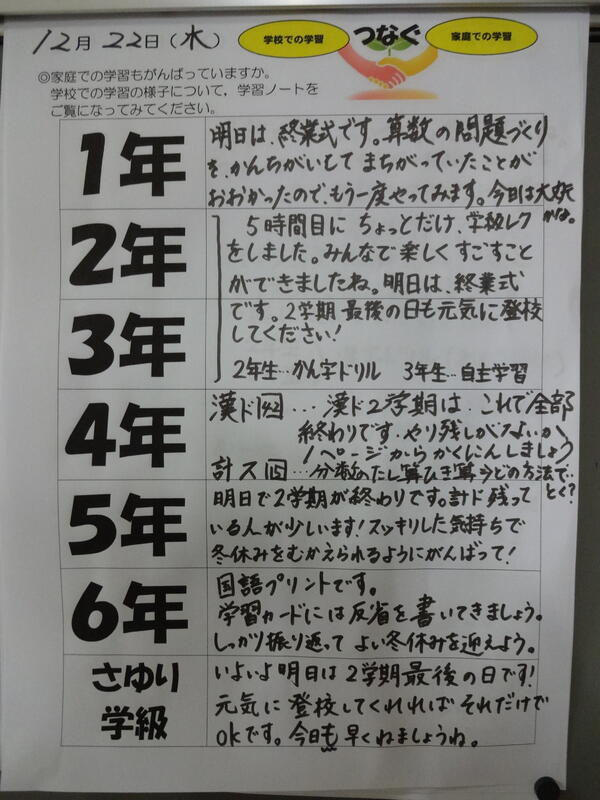 12月 22日（水）
学校での学習 つなぐ 家庭での学習
◎家庭での学習もがんばっていますか。
学校での学習の様子について，学習ノートを
ご覧になってみてください。
1年
明日は、終業式です。算数の問題づくり
を、かんちがいして まちがっていたことが
おおかったので、もう一度やってみます。今日は大丈夫
かな。
2年
3年
5時間目に ちょっとだけ、学級レク
をしました。みんなで楽しくすごすこと
ができましたね。明日は、終業式
です。2学期 最後の日も元気に登校
してください！
2年生…かん字ドリル 3年生…自主学習
4年
漢ド42 … 漢ド2学期は、これで全部
終わりです。やり残しがないか
1ページからかくにんしましょう
計ス115…分数のたし算ひき算 今どの方法で
とく？
5年
明日で2学期が終わりです。計ド残って
いる人が少しいます！スッキリした気持ちで
冬休みをむかえられるようにがんばって！
6年
国語プリントです。
学習カードには反省を書いてきましょう。
しっかり振り返って よい冬休みを迎えよう。
さゆり
学級
いよいよ明日は2学期最後の日です！
元気に登校してくれればそれだけで
OKです。今日も早くねましょうね。